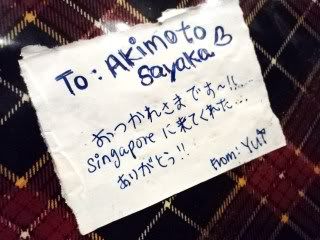 To: Akimoto
Sayaka
おっつかれさまであ〜!!
singaporeに来てくれた...
ありがとう!!
From: Yui